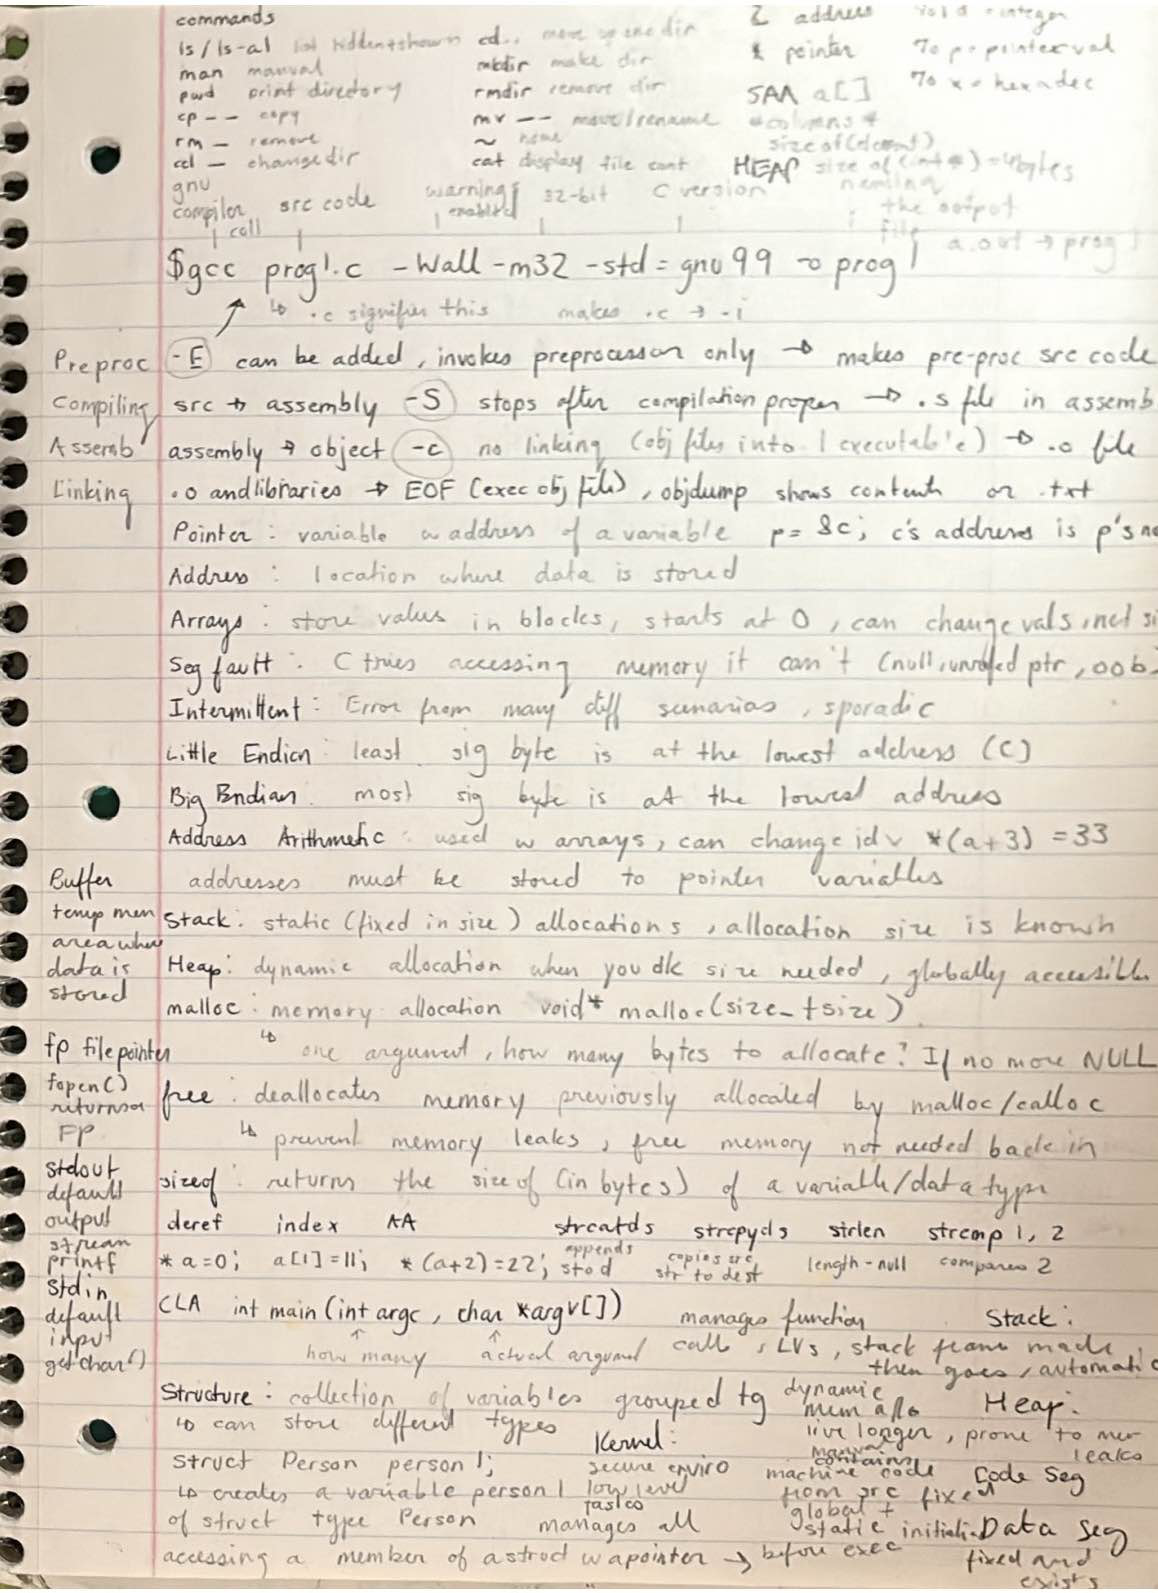 commands
ls/ls-al list hidden+shown cd.. move up one dir
man manual mkdir make dir
pwd print directory rmdir remove dir
cp -- copy mv -- move/rename
rm - remove ~ home
cd - change dir cat display file cont
& address %d = integer
* pointer %p = pointer val
SAA a[] %x = hexadec
#columns *
sizeof(element)
HEAP size of (int*) = 4bytes
gnu compiler call src code warnings enabled 32-bit C version naming the output file
a.out → prog1
$gcc prog1.c -Wall -m32 -std=gnu99 -o prog1
↳ .c signifies this makes .c → .i
Preproc -E can be added, invokes preprocessor only → makes pre-proc src code
Compiling src → assembly -S stops after compilation proper → .s file in assemb
Assemb assembly → object -c no linking (obj files into 1 executable) → .o file
Linking .o and libraries → EOF (exec obj file), objdump shows content or .txt
Pointer: variable w address of a variable p= &c; c's address is p's
Address: location where data is stored
Arrays: store values in blocks, starts at 0, can change vals, not si
Seg fault: C tries accessing memory it can't (null, ptr, oob)
Intermittent: Error from many diff scenarios, sporadic
Little Endian: least sig byte is at the lowest address (C)
Big Endian: most sig byte is at the lowest address
Address Arithmetic: used w arrays, can change id v *(a+3) = 33
addresses must be stored to pointer variables
Buffer
temp mem
area where
data is
stored
Stack: static (fixed in size) allocations, allocation size is known
Heap: dynamic allocation when you dk size needed, globally accessible
malloc: memory allocation void* malloc(size_t size)
↳ one argument, how many bytes to allocate? If no more NULL
fp file pointer
fopen()
returns a
FP
free: deallocates memory previously allocated by malloc/calloc
↳ prevent memory leaks, free memory not needed back in
stdout
default
output
stream
printf
sizeof: returns the size of (in bytes) of a variable/data type
deref index AA strcatds strcpyds strlen strcmp 1, 2
*a=0; a[1]=11; *(a+2)=22; appends s to d copies src str to dest length-null compares 2
stdin
default
input
getchar()
CLA int main (int argc, char *argv[])
how many actual argument
manages function Stack:
calls, LVs, stack frame made,
then goes, automatic
Structure: collection of variables grouped tg
↳ can store different types
struct Person person1;
↳ creates a variable person1
of struct type Person
accessing a member of a struct w a pointer →
Kernel:
secure enviro
low level
tasks
manages all
dynamic
mem allo Heap:
live longer, prone to mem
leaks
manual
contains
machine code Code Seg
from src fixed
global +
static initiali Data Seg
before exec fixed and
exists